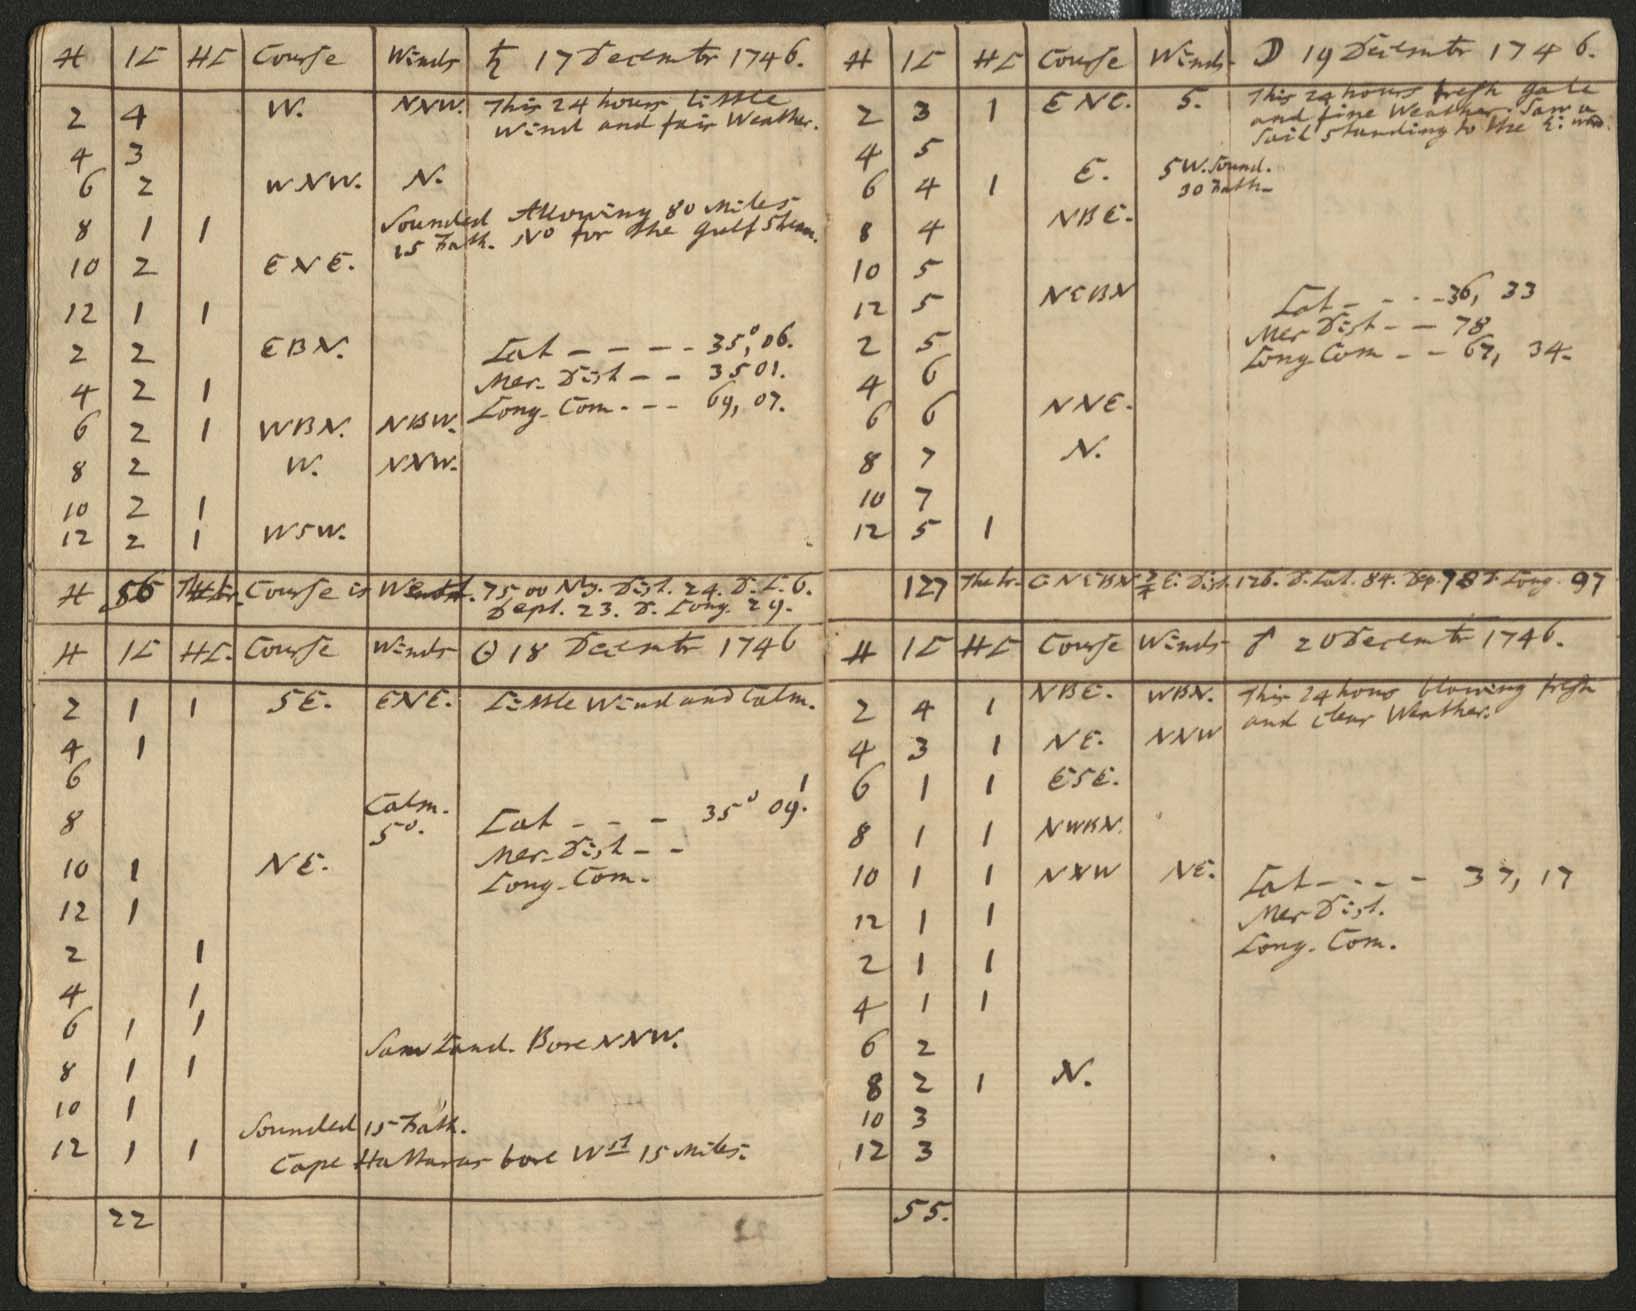 H 1K HK Course Winds ♄ 17 Decembr 1746.
2 4 W. NNW. This 24 hours little
wind and fair Weather.
4 3
6 2 WNW. N.
8 1 1 Sounded Allowing 80 Miles
15 Fath. No for the Gulf Stream.
10 2 ENE.
12 1 1
2 2 EBN. Lat - - - - 35°,06.
4 2 1 Mer. Dist - - 3501.
6 2 1 WBN. NBW. Long. Com. - - - 69, 07.
8 2 W. NNW.
10 2 1
12 2 1 WSW.
H 56 Course is West. 75 00 Nly. Dist. 24. D. L. 6.
Dept. 23. D. Long. 29.
H 1K HK. Course Winds ☉ 18 Decembr 1746
2 1 1 SE. ENE. Little Wind and Calm.
4 1
6
8 Calm. Lat - - - 35° 09'.
S°. Mer. Dist - -
10 1 NE. Long. Com.
12 1
2 1
4 1
6 1 1 Saw Land. Bore NNW.
8 1 1
10 1 Sounded 15 Fath.
12 1 1 Cape Hattaras bore Wst 15 Miles.
22
H 1K HK Course Winds ☽ 19 Decembr 1746.
2 3 1 ENE. S. This 24 hours fresh gale
and fine Weather. Saw a
Sail standing to the
4 5
6 4 1 E. SW. Sound.
30 Fath.
8 4 NBE.
10 5
12 5 NEBN Lat - - - - 36, 33
2 5 Mer Dist - - 78
4 6 Long Com - - 67, 34.
6 6 NNE.
8 7 N.
10 7
12 5 1
127 The tr. C NEBN 3/4 E. Dist. 126. D. Lat. 84. Dep. 78 D. Long. 97
H 1K HK Course Winds ♂ 20 Decembr 1746.
2 4 1 NBE. WBN. This 24 hours blowing fresh
and clear Weather.
4 3 1 NE. NNW
6 1 1 ESE.
8 1 1 NWBN.
10 1 1 NNW NE. Lat - - - - 37, 17
12 1 1 Mer Dist.
2 1 1 Long. Com.
4 1 1
6 2
8 2 1 N.
10 3
12 3
55.